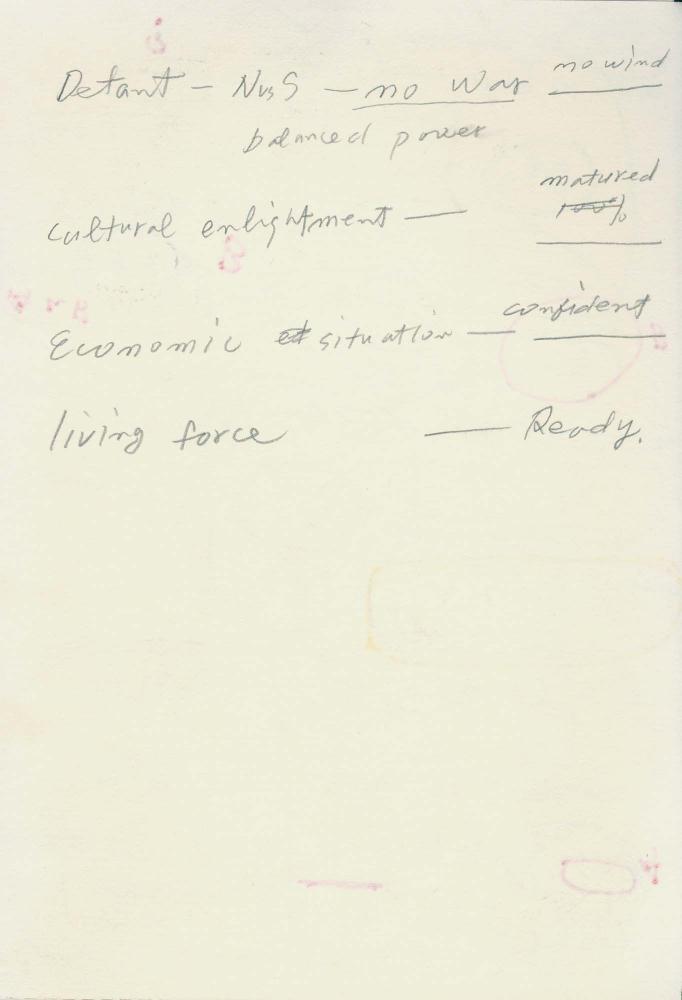 Detant - NvsS - no War no wind
balanced power
matured
cultural enlightment — 100%
confident
Economic et situation —
living force — Ready.